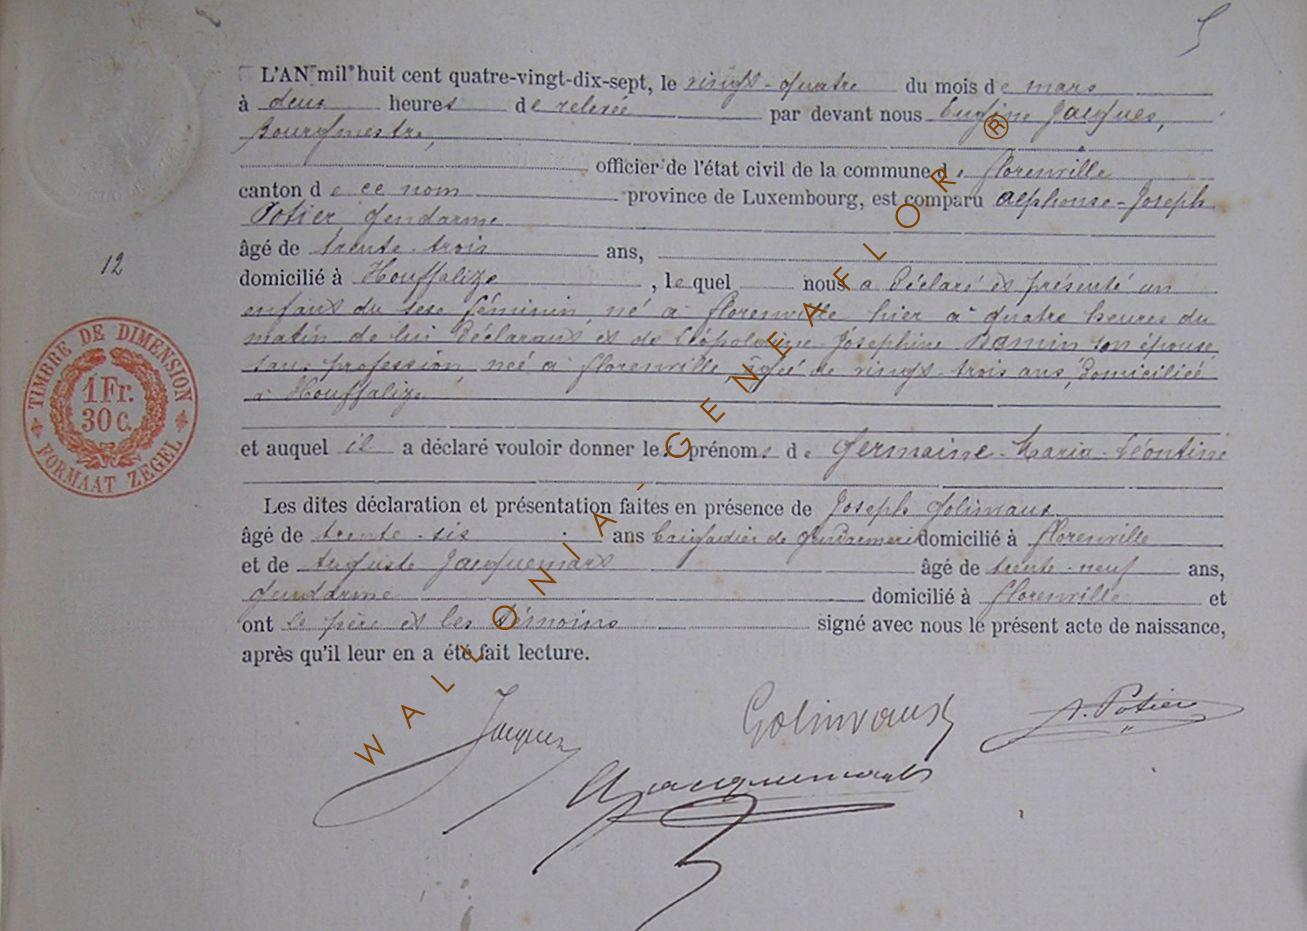 5
L'AN mil huit cent quatre-vingt-dix-sept, le vingt-quatre du mois de mars
à deux heures de relevée par devant nous Eugène Jacques,
Bourgmestre,
officier de l'état civil de la commune de Florenville
canton de ce nom province de Luxembourg, est comparu Alphonse-Joseph
Potier gendarme
âgé de trente-trois ans,
domicilié à Houffalize, lequel nous a déclaré et présenté un
enfant du sexe féminin, né à Florenville hier à quatre heures du
matin de lui déclarant et de Léopoldine-Joséphine son épouse,
sans profession née à Florenville, âgée de vingt-trois ans, domiciliée
à Houffalize
et auquel il a déclaré vouloir donner les prénoms de Germaine-Maria-Léontine
Les dites déclaration et présentation faites en présence de Joseph Golinvaux
âgé de trente-six ans brigadier de gendarmerie domicilié à Florenville
et de Auguste Jacquemart âgé de trente-neuf ans,
gendarme domicilié à Florenville et
ont le père et les témoins signé avec nous le présent acte de naissance,
après qu'il leur en a été fait lecture.
12
TIMBRE DE DIMENSION
1 Fr.
30 C.
FORMAAT ZEGEL
Jacques
Golinvaux
A. Potier
A Jacquemart
WALLONIA-GENEAFLOR ®